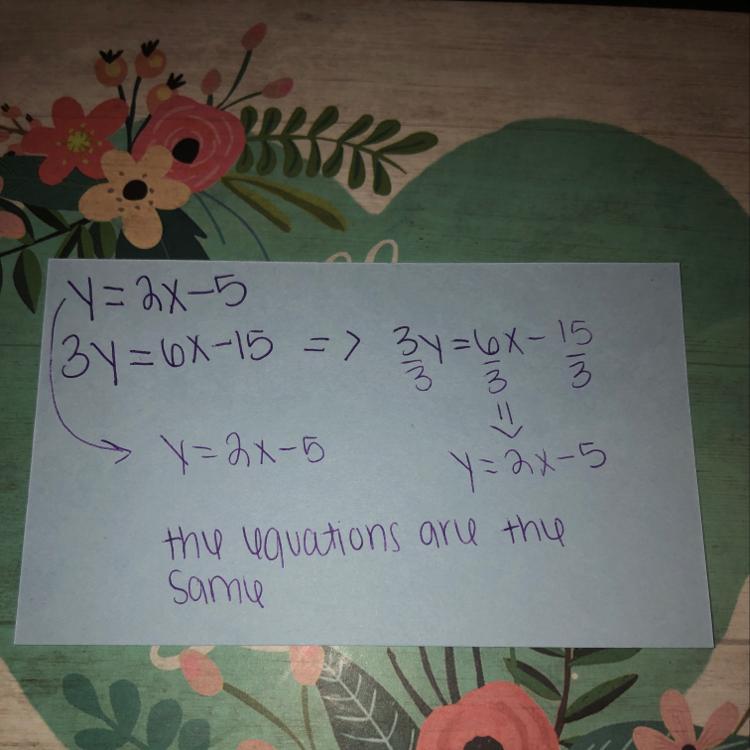 y = 2x - 5
3y = 6x - 15 => 3/3 y = 6/3 x - 15/3
⇓
y = 2x - 5 y = 2x - 5
the equations are the
same